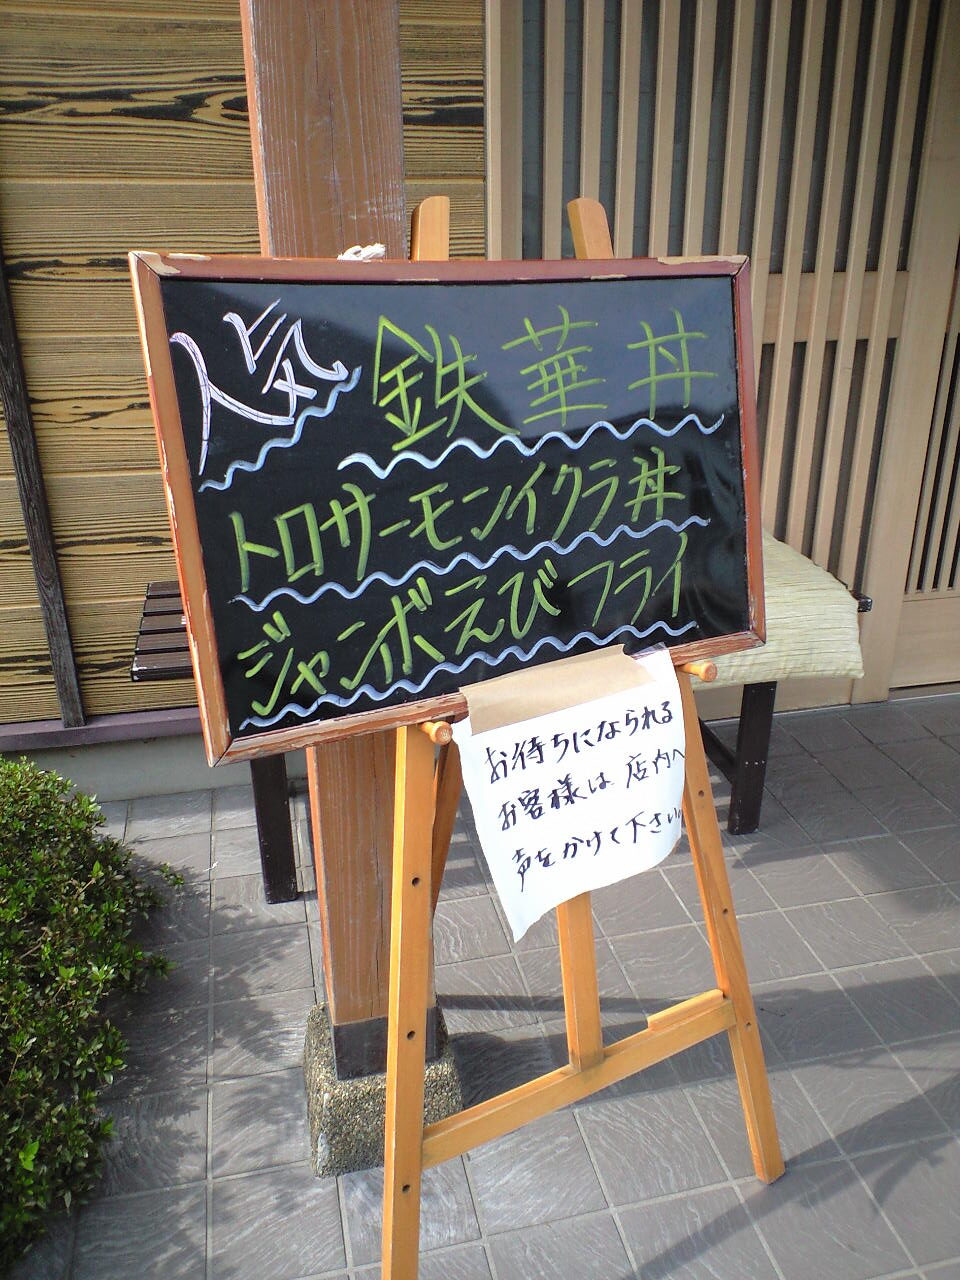 人気 鉄華丼
トロサーモンイクラ丼
ジャンボえびフライ
お待ちになられる
お客様は店内へ
声をかけて下さい